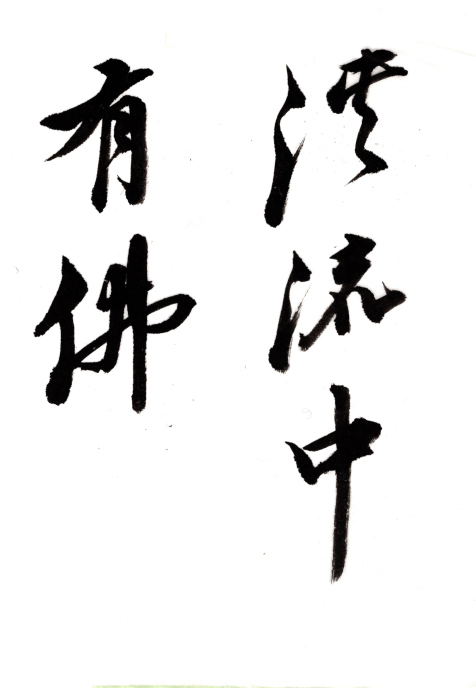 洪流中
有佛